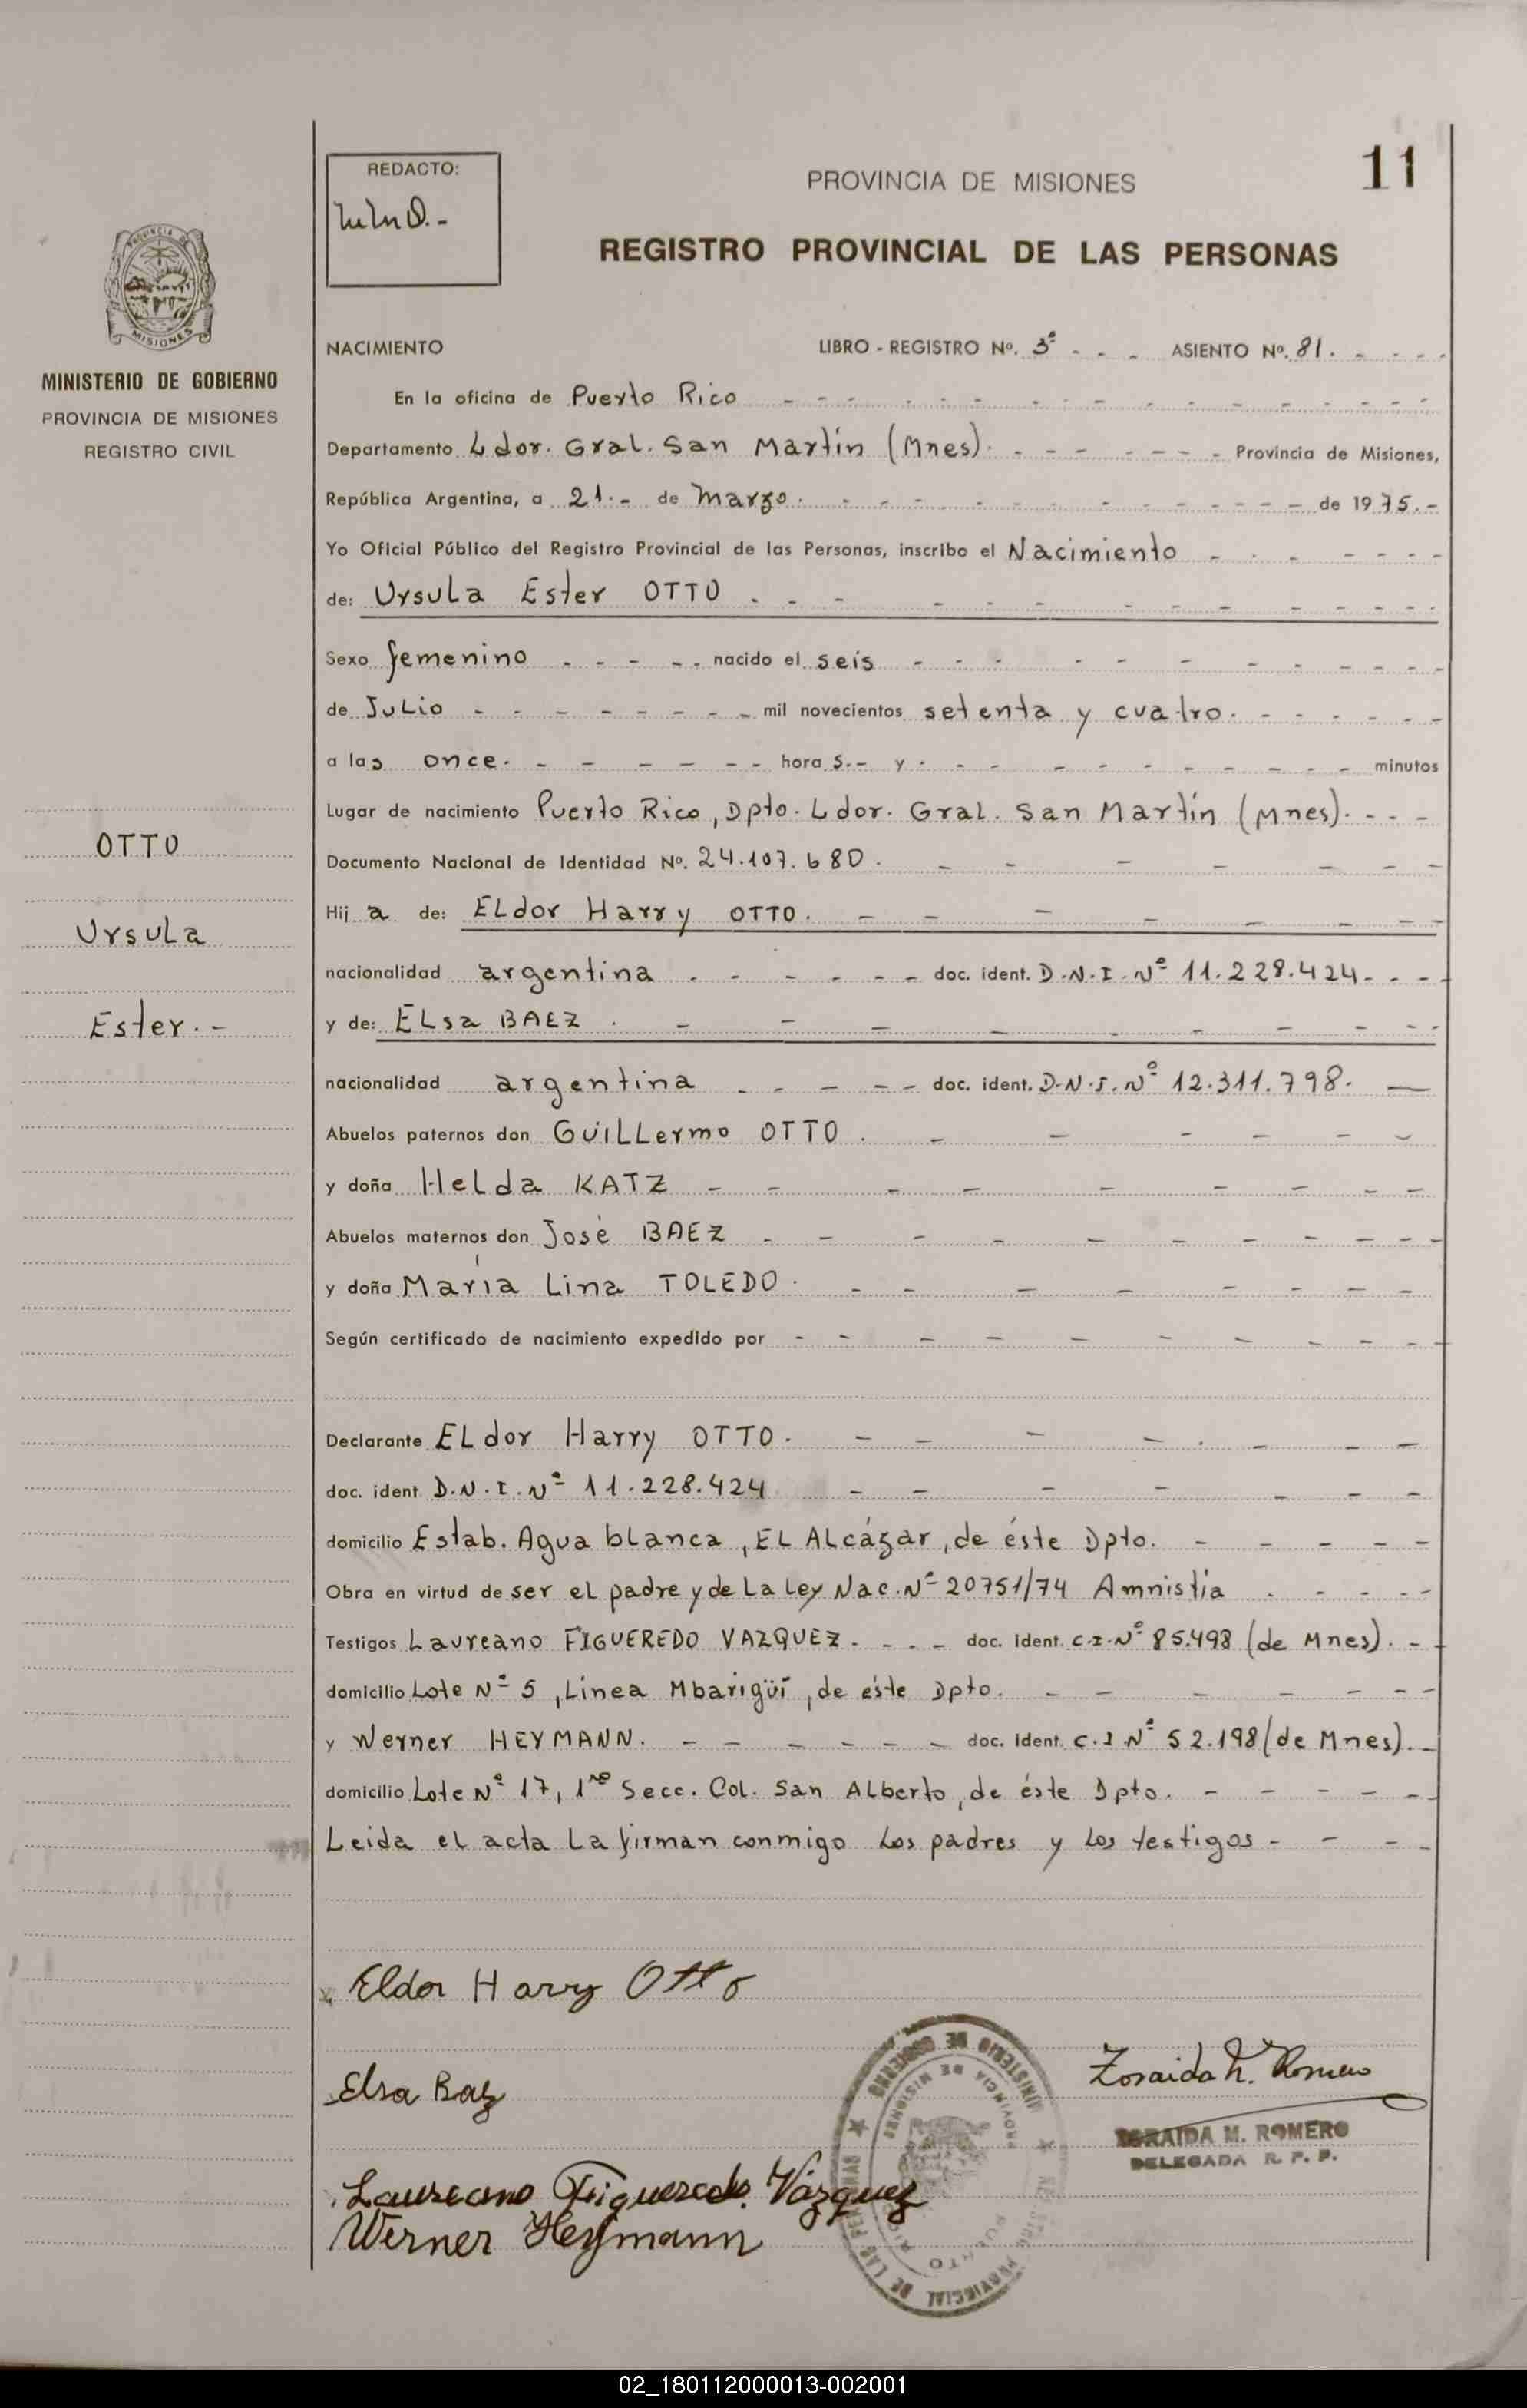 11
REDACTO:
PROVINCIA DE MISIONES
REGISTRO PROVINCIAL DE LAS PERSONAS
PROVINCIA DE
MISIONES
MINISTERIO DE GOBIERNO
PROVINCIA DE MISIONES
REGISTRO CIVIL
NACIMIENTO LIBRO - REGISTRO Nº. 3º - - - ASIENTO Nº. 81. - - - -
En la oficina de Puerto Rico
Departamento Ldor. Gral. San Martín (Mnes). Provincia de Misiones,
República Argentina, a 21.- de Marzo. de 1975.-
Yo Oficial Público del Registro Provincial de las Personas, inscribo el Nacimiento
de: Ursula Ester OTTO
Sexo femenino nacido el seis
de Julio mil novecientos setenta y cuatro.
a las once. horas.- y minutos
Lugar de nacimiento Puerto Rico, Dpto. Ldor. Gral. San Martín (Mnes).
OTTO
Documento Nacional de Identidad Nº. 24.107.680.
Hija de: ELdor Harry OTTO.
Ursula
nacionalidad argentina doc. ident. D.N.I. Nº 11.228.424
Ester.-
y de: ELsa BAEZ
nacionalidad argentina doc. ident. D.N.I. Nº 12.311.798.
Abuelos paternos don GUiLLermo OTTO.
y doña HeLda KATZ
Abuelos maternos don José BAEZ
y doña María Lina TOLEDO.
Según certificado de nacimiento expedido por
Declarante ELdor Harry OTTO.
doc. ident. D.N.I. Nº 11.228.424
domicilio Estab. Agua blanca, EL ALcázar, de éste Dpto.
Obra en virtud de ser el padre y de La Ley Nac. Nº 20751/74 Amnistía
Testigos Laureano FIGUEREDO VAZQUEZ. doc. ident. C.I. Nº 85.498 (de Mnes).
domicilio Lote Nº 5, Línea Mbarigüí, de éste Dpto.
y Werner HEYMANN. doc. ident. C.I Nº 52.198 (de Mnes).
domicilio Lote Nº 17, 1ra Secc. Col. San ALberto, de éste Dpto.
Leida el acta La firman conmigo Los padres y Los testigos
Eldor Harry Otto
Elsa Baez
Zoraida M. Romero
ZORAIDA M. ROMERO
DELEGADA R. P. P.
Laureano Figueredo Vázquez
Werner Heymann
MINISTERIO DE GOBIERNO
PROVINCIA DE MISIONES
REGISTRO PROVINCIAL DE LAS PERSONAS
PUERTO RICO
02_180112000013-002001